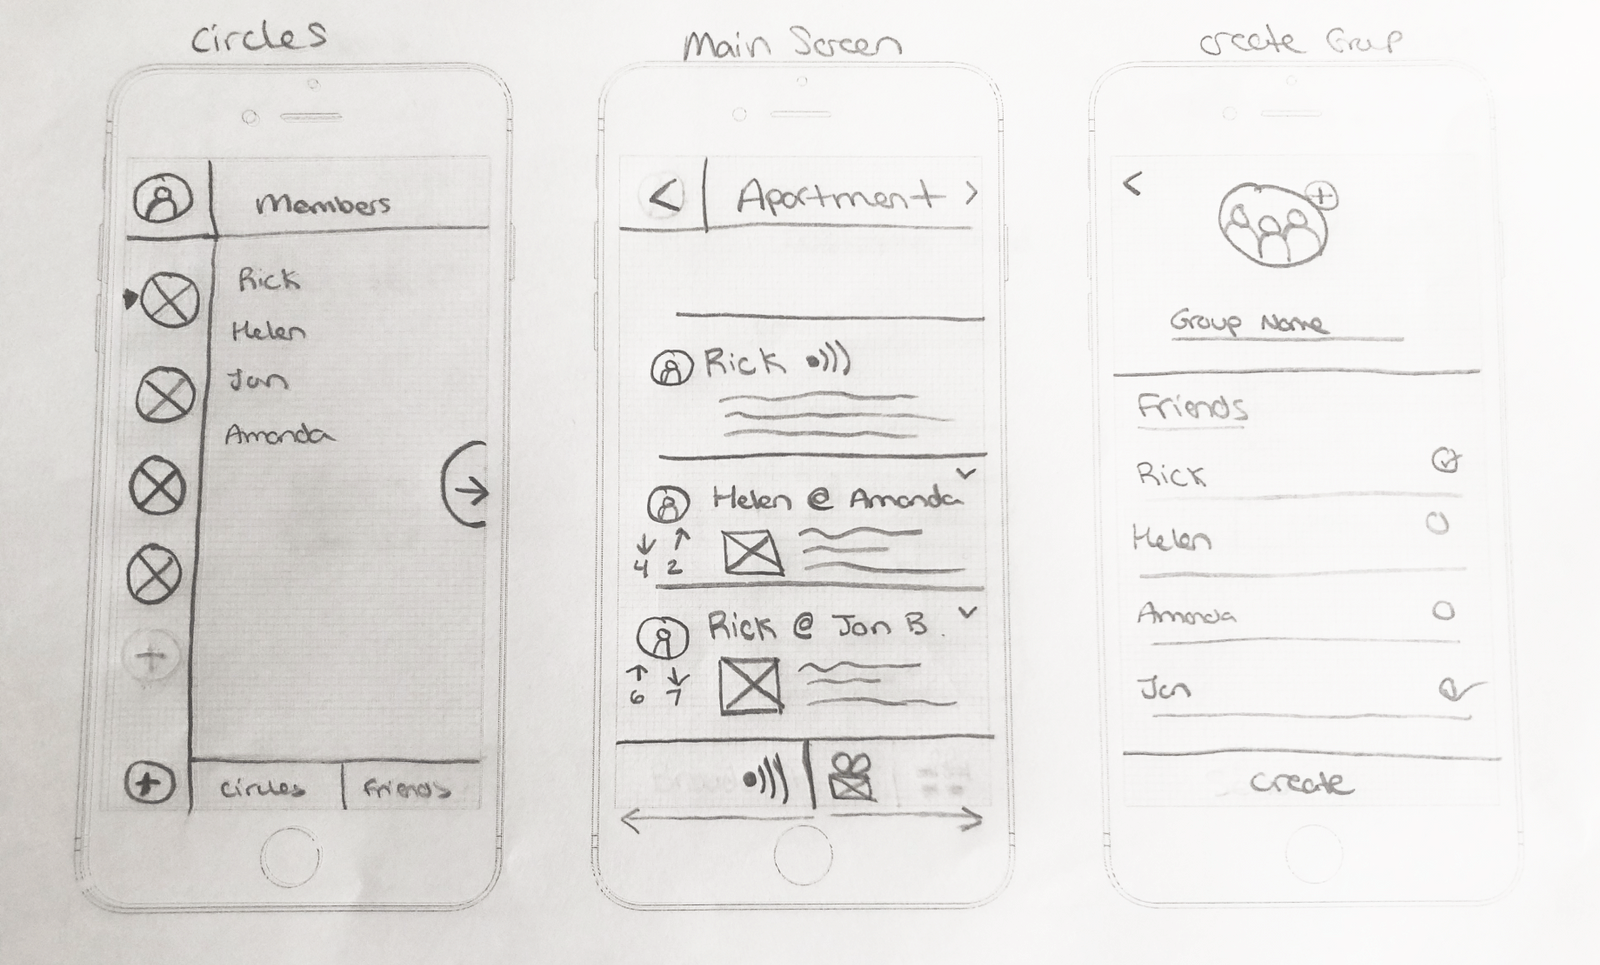 Circles
Members
Rick
Helen
Jon
Amanda
Circles
Friends
Main Screen
Apartment
Rick
Helen @ Amanda
4 2
Rick @ Jon B.
6 7
Create Group
Group Name
Friends
Rick
Helen
Amanda
Jon
Create